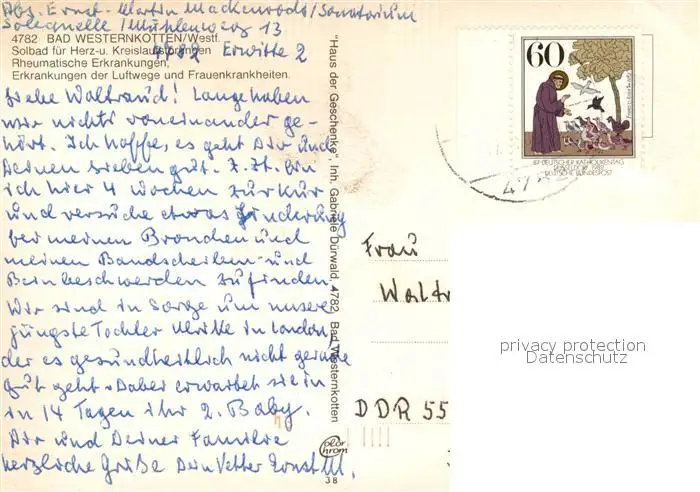 Abs. Ernst-Martin Mackenrodt/Sanatorium
Solequelle/Mühlenweg 13
4782 BAD WESTERNKOTTEN/Westf.
4782 Erwitte 2
Solbad für Herz-u. Kreislaufstörungen
Rheumatische Erkrankungen,
Erkrankungen der Luftwege und Frauenkrankheiten.
Liebe Waltraud! Lange haben
wir nichts voneinander ge-
hört. Ich hoffe, es geht Dir und
Deinen Lieben gut. Z. Zt. bin
ich hier 4 Wochen zur Kur
und versuche etwas Linderung
bei meinen Bronchen und
meinen Bandscheiben- und
Beinbeschwerden zu finden.
Wir sind in Sorge um unsere
jüngste Tochter Ulrike in London,
der es gesundheitlich nicht gerade
gut geht. Dabei erwartet sie in
in 14 Tagen ihr 2. Baby.
Dir und Deiner Familie
herzliche Grüße Dein Vetter Ernst M.
"Haus der Geschenke", Inh. Gabriele Dürwald, 4782 Bad Westernkotten
color
chrom
38
60
87. DEUTSCHER KATHOLIKENTAG
DÜSSELDORF 1982
DEUTSCHE BUNDESPOST
Frau
Waltr
DDR 55
privacy protection
Datenschutz